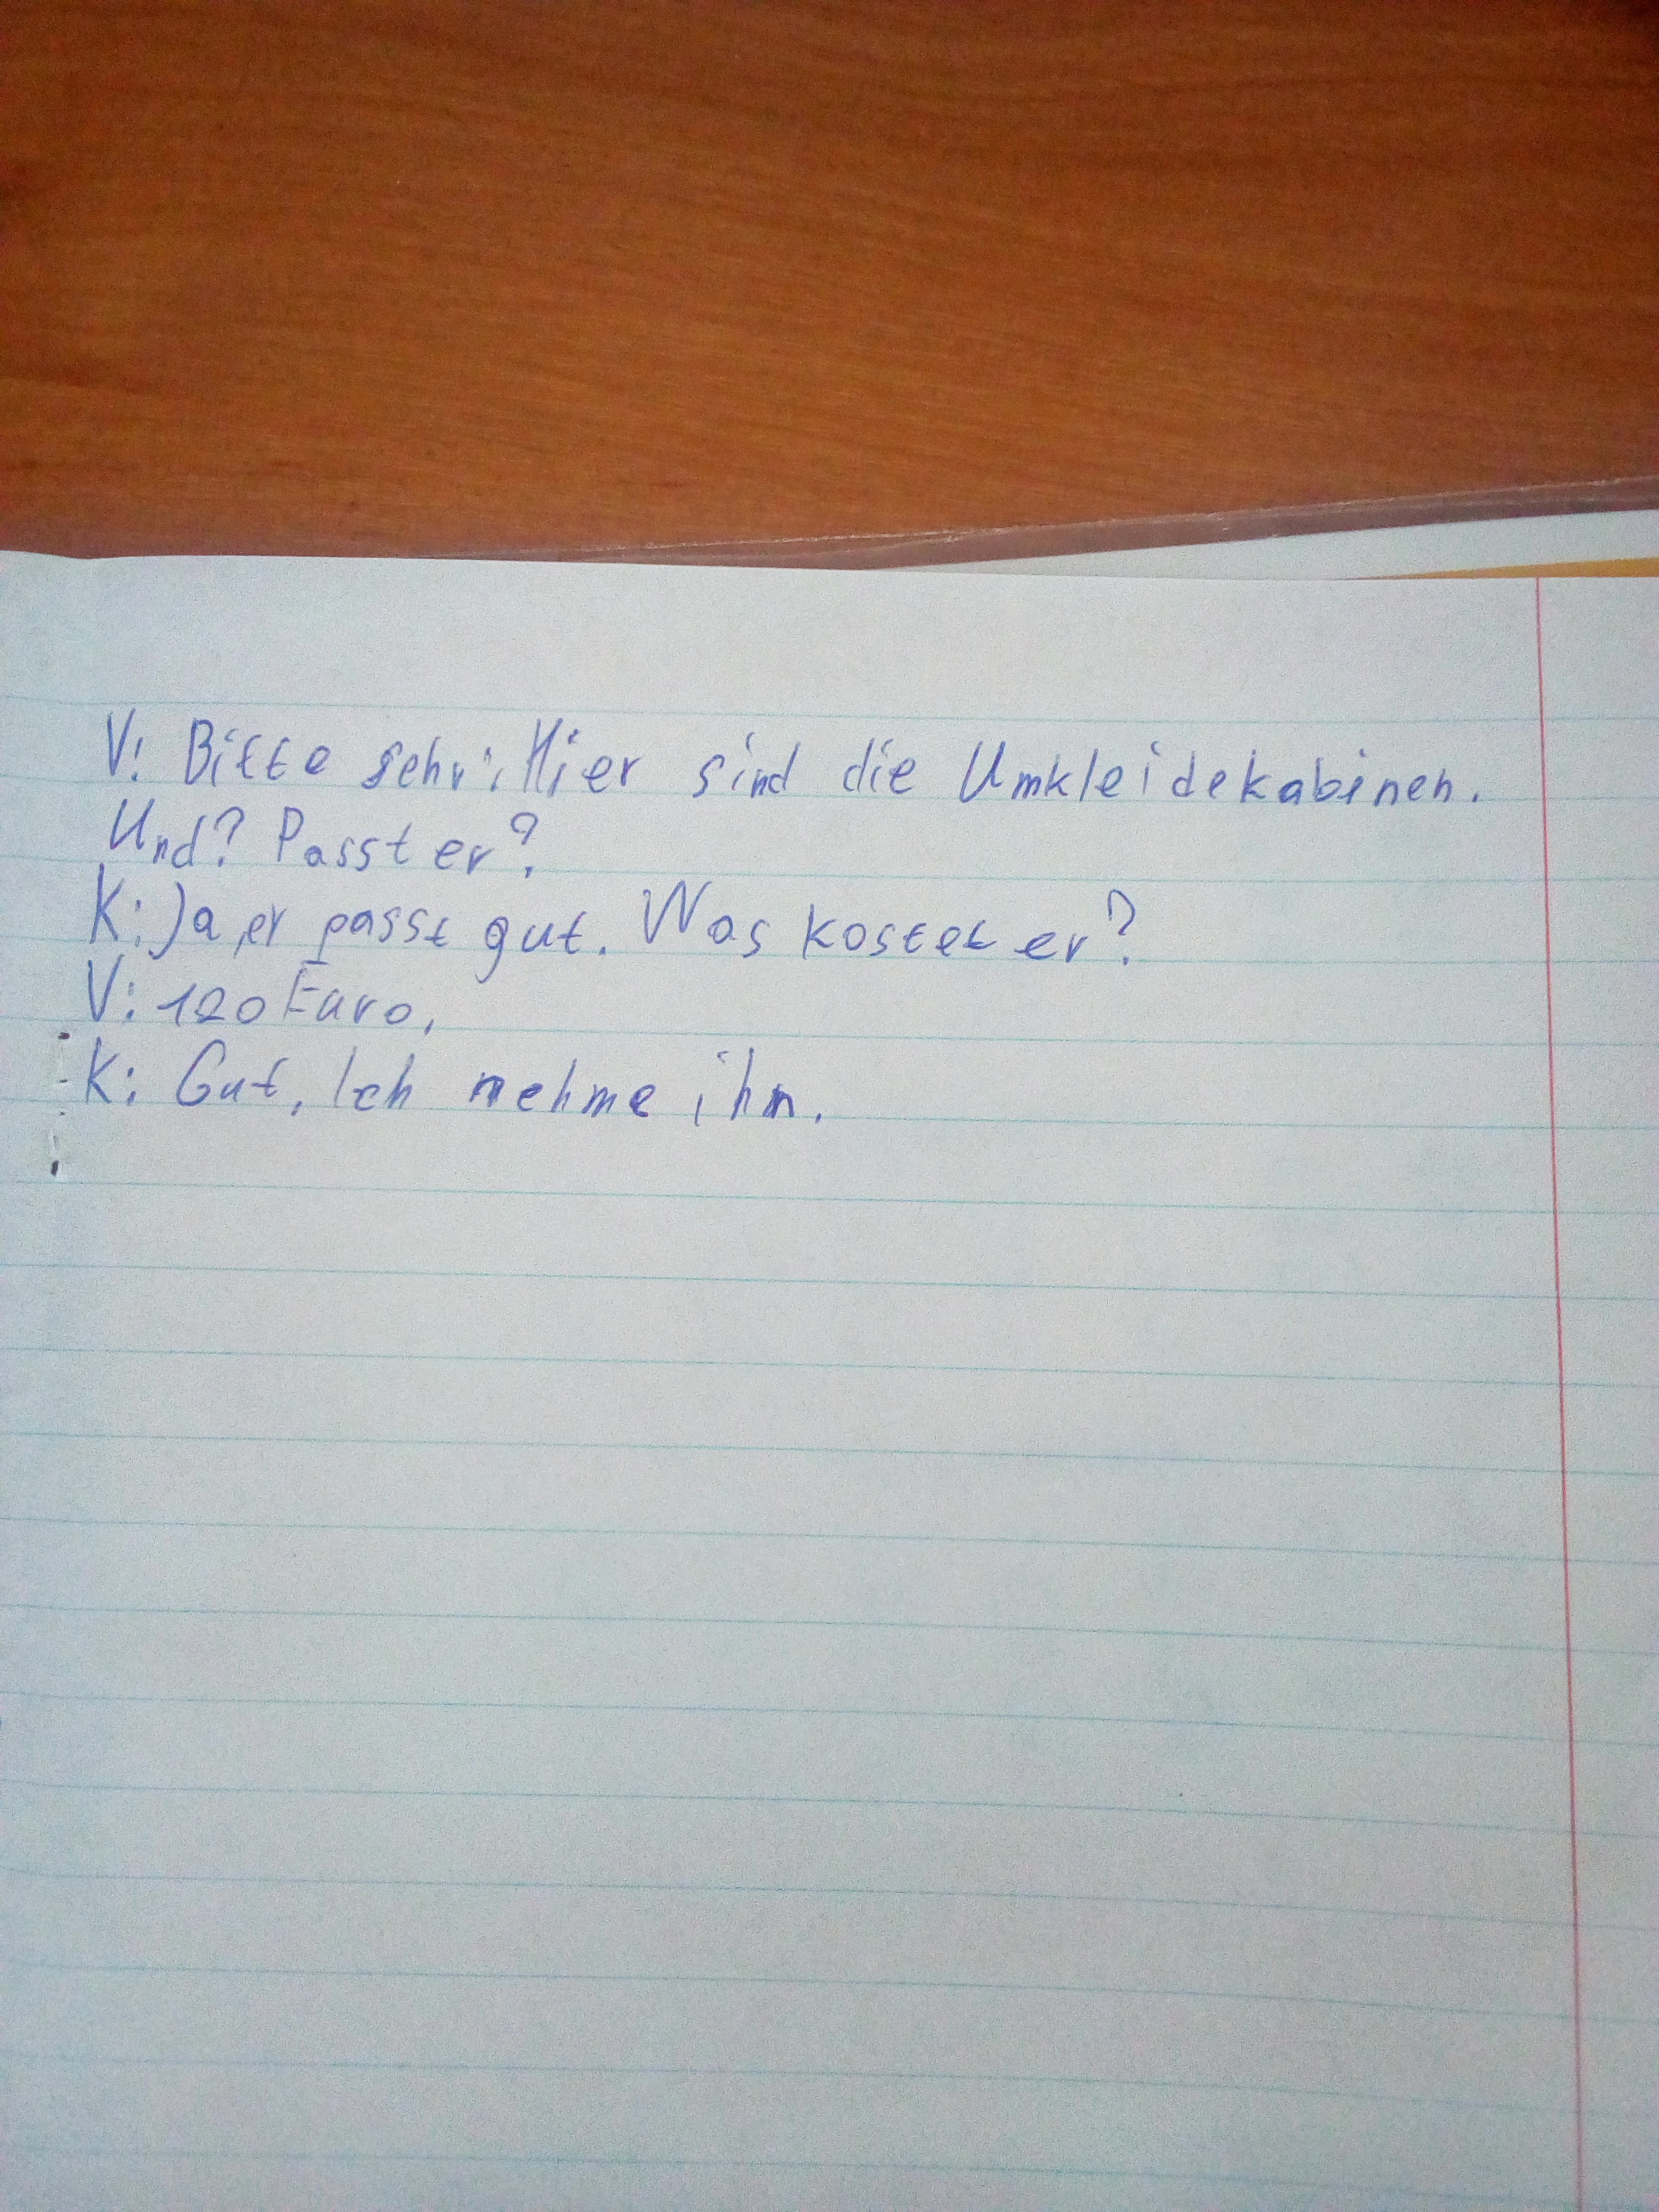 V: Bitte sehr. Hier sind die Umkleidekabinen.
Und? Passt er?
K: Ja, er passt gut. Was kostet er?
V: 120 Euro.
K: Gut, Ich nehme ihn.